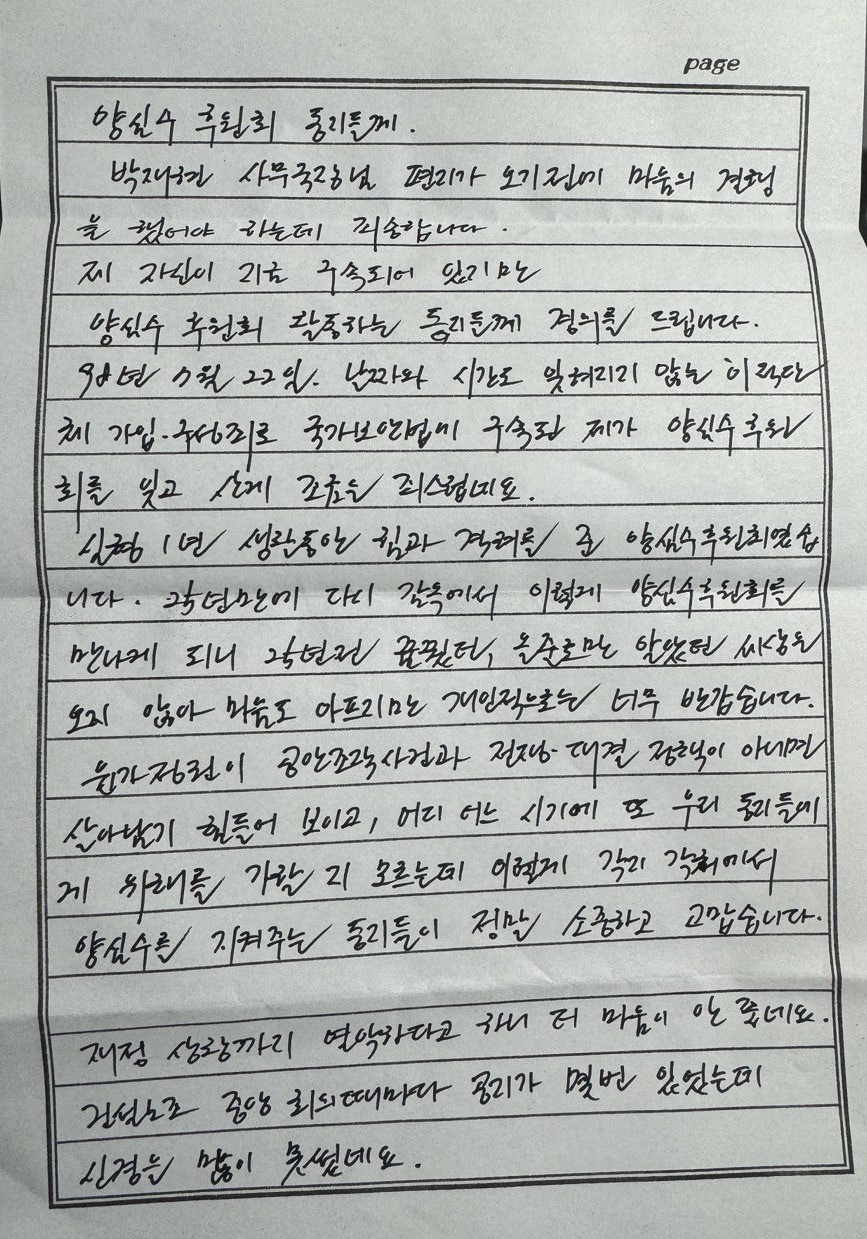 page
양심수 후원회 동지들께.
박재현 사무국장님 편지가 오기전에 마음의 결정
을 했어야 하는데 죄송합니다.
제 자신이 지금 구속되어 있지만
양심수 후원회 활동하는 동지들께 경의를 드립니다.
98년 7월 22일. 날짜와 시간도 잊혀지지 않는 이적단
체 가입·구성죄로 국가보안법에 구속된 제가 양심수후원
회를 잊고 산게 조금은 죄스럽네요.
실형 1년 생활동안 힘과 격려를 준 양심수후원회였습
니다. 25년만에 다시 감옥에서 이렇게 양심수후원회를
만나게 되니 25년전 꿈꿨던, 올줄로만 알았던 세상은
오지 않아 마음도 아프지만 개인적으로는 너무 반갑습니다.
윤가정권이 공안조작사건과 전쟁·대결 정책이 아니면
살아남기 힘들어 보이고, 어디 어느 시기에 또 우리 동지들에
게 위해를 가할 지 모르는데 이렇게 각지 각처에서
양심수를 지켜주는 동지들이 정말 소중하고 고맙습니다.
재정 상황까지 열악하다고 하니 더 마음이 안 좋네요.
건설노조 중앙 회의때마다 공지가 몇번 있었는데
신경을 많이 못썼네요.